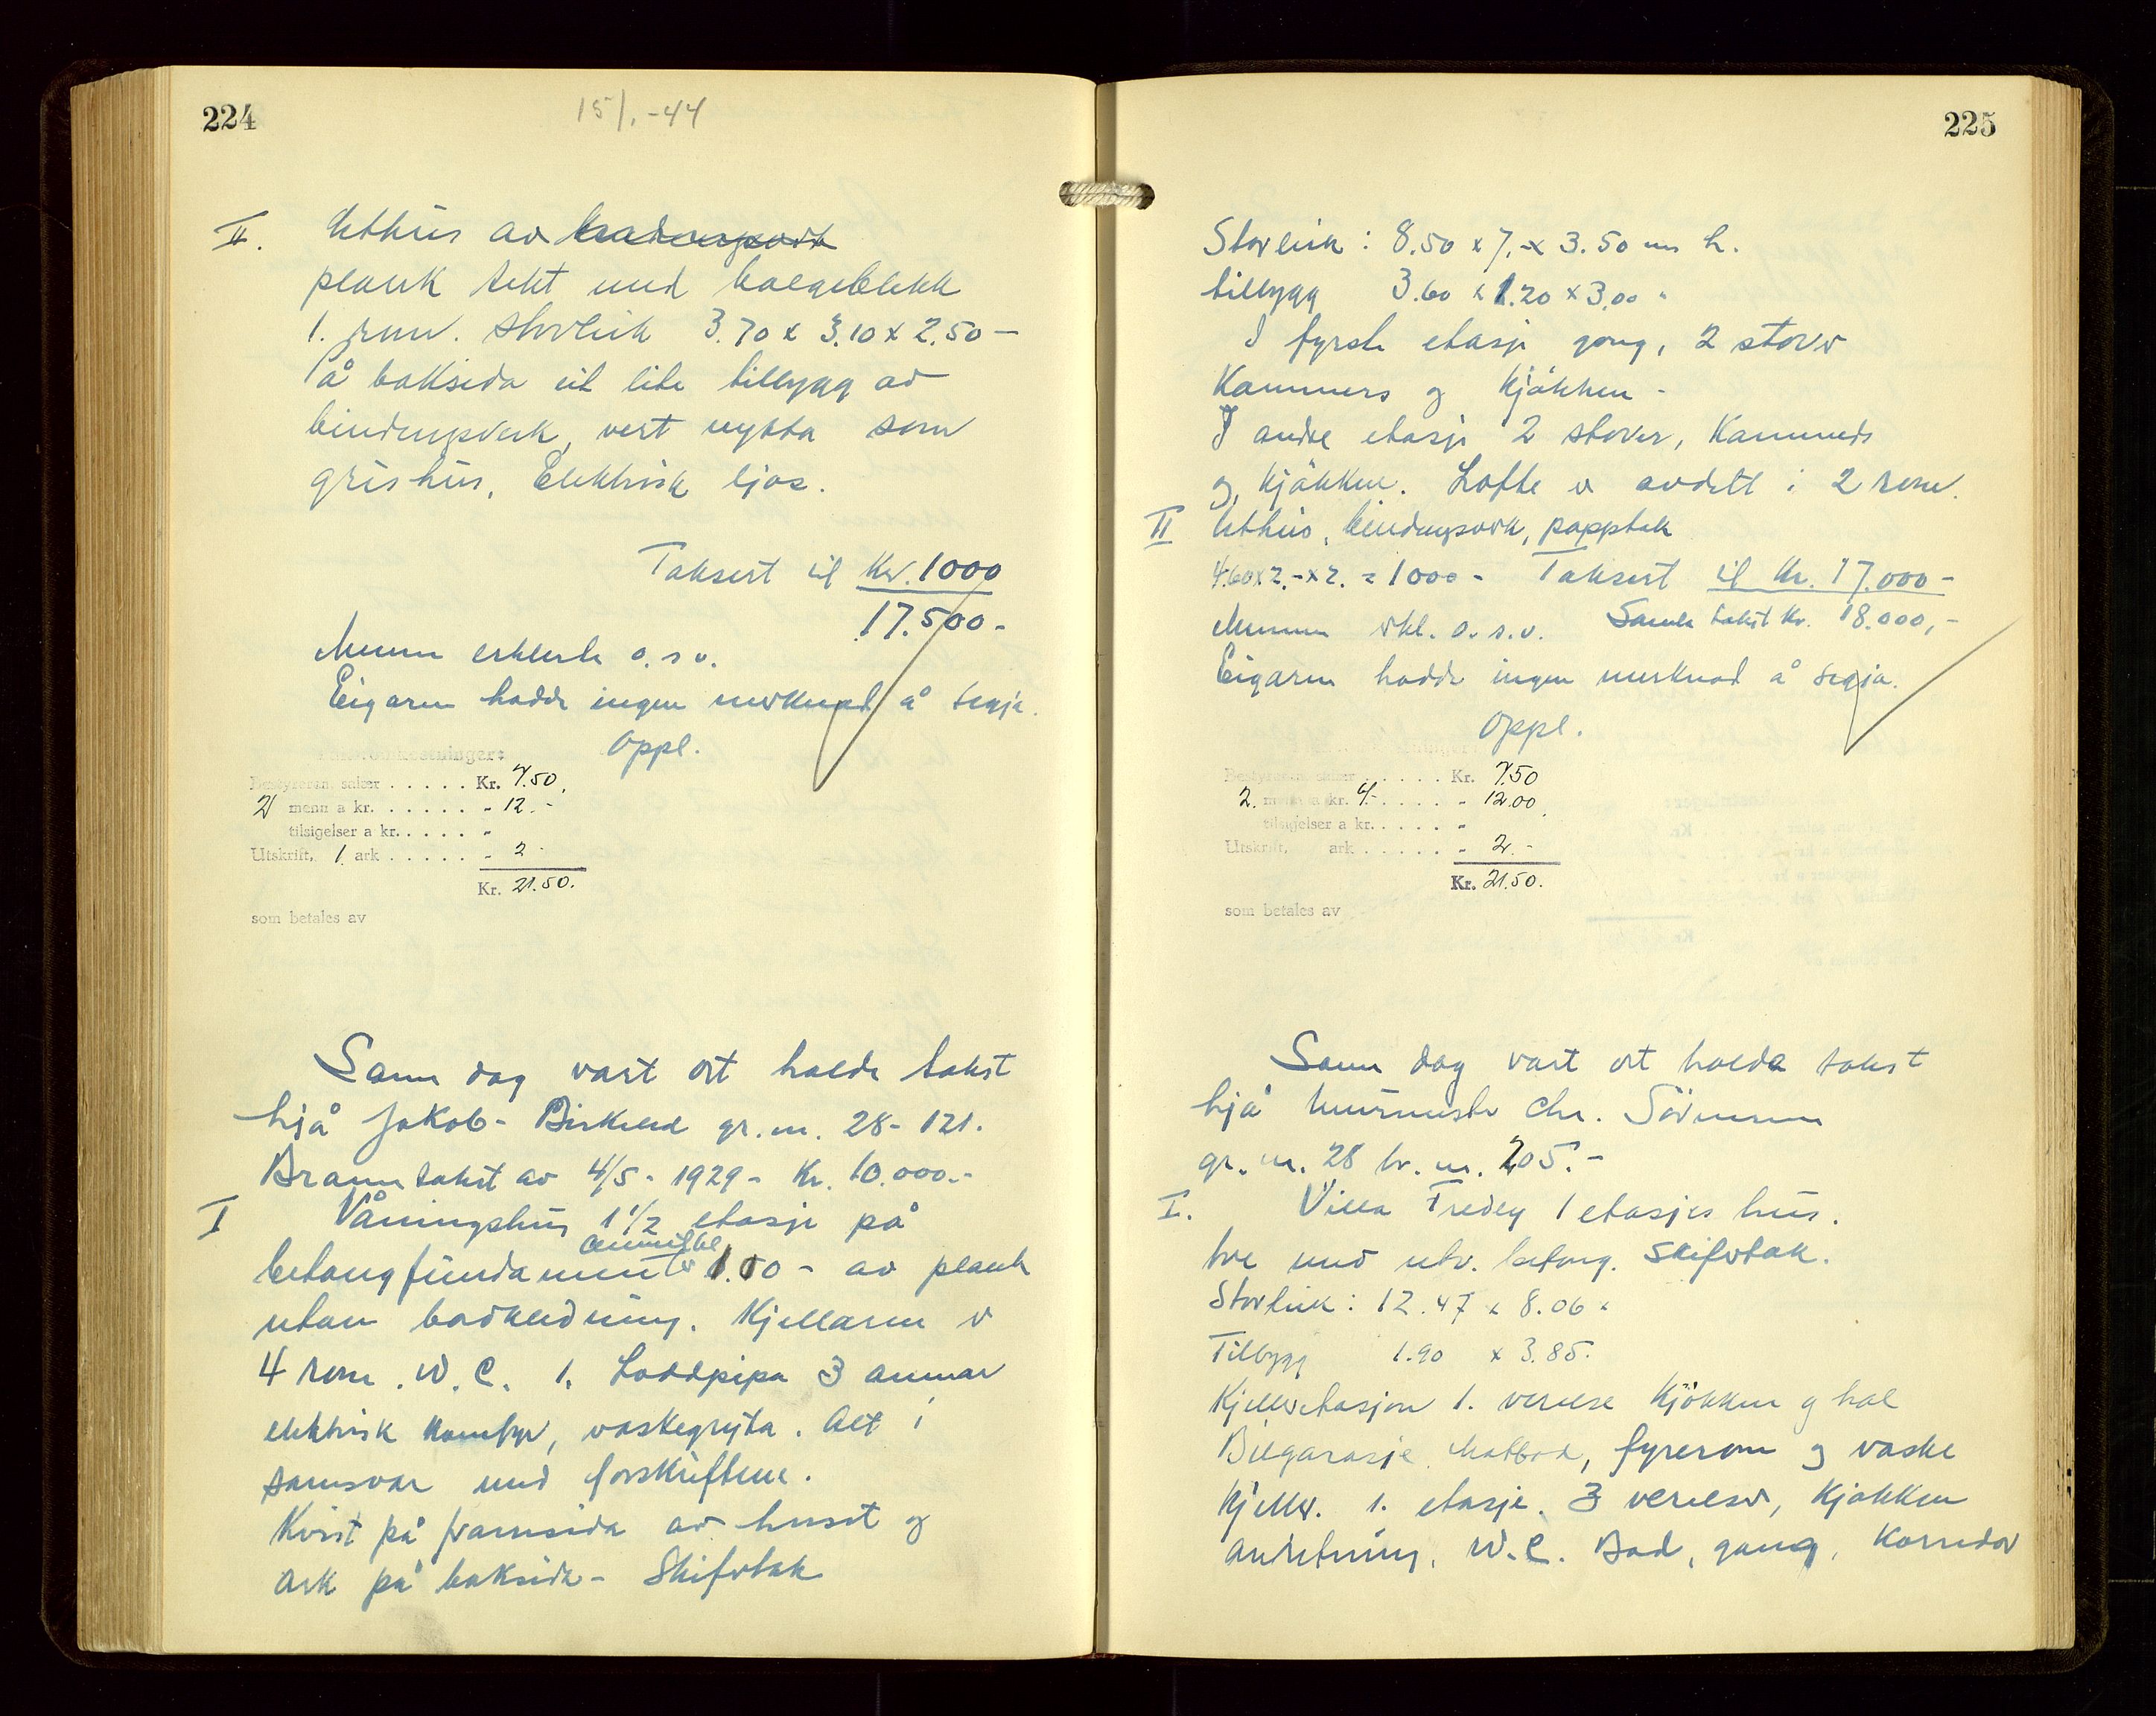 224
15/1.-44
II. Uthus av
plank tekt med bølgeblekk
1. rom. storleik 3.70 x 3.10 x 2.50 -
På baksida eit lite tilbygg av
bindingsverk, vert nytta som
grishus. Elektrisk ljos.
Taksert til Kr. 1000
17.500.-
Menn erklerte o.s.v.
Eigaren hadde ingen merknad å segja.
Oppl.
Bestyreren, salær . . . . . Kr. 7.50.
2 menn a kr. . . . . . „ 12.-
tilsigelser a kr. . . . . „
Utskrift, 1 ark . . . . . „ 2-
Kr. 21.50.
som betales av
Same dag vart det halde takst
hjå Jakob Birkeland gr. nr. 28-121.
Branntakst av 4/5-1929- Kr. 10.000.-
I Våningshus 1 1/2 etasje på
betongfundament er 1.10 - av plank
utan bordkledning. Kjellaren er
4 rom. W.C. 1. Loddpipa 3 omnar
elektrisk komfyr, vaskegryta. Alt i
samsvar med forskriftene.
Kvist på framsida av huset og
ark på baksida - Skifertak
225
Storleik: 8.50 x 7.- x 3.50 m h.
tilbygg 3.60 x 1.20 x 3.00 "
I fyrste etasje gang, 2 stover
Kammers og Kjøkken -
I andre etasje 2 stover, Kammers
og Kjøkken. Lofte er avdelt i 2 rom.
II Uthus, bindingsverk, papptak
4.60 x 2.- x 2. = 1000- Taksert til Kr. 17.000-
Mennene erkl. o.s.v. Samla takst Kr. 18.000,-
Eigaren hadde ingen merknad å segja.
Oppl.
Bestyreren, salær . . . . . Kr. 7.50
2. menn a kr. 6.- . . . . „ 12.00.
tilsigelser a kr. . . . . „
Utskrift, ark . . . . . „ 2.-
Kr. 21.50.
som betales av
Same dag vart det halde takst
hjå murmester Chr. Sørensen
gr. nr. 28 br. nr. 205.-
I. Villa Fredly 1 etasjes hus.
tre med utv. betong. Skifertak.
Storleik: 12.47 x 8.06 x
Tilbygg 1.90 x 3.85.
Kjelleretasjen 1. verelse Kjøkken og hal
Bilgarasje. Matbod, fyrerom og vaske
Kjeller. 1. etasje. 3 verelser, Kjøkken
anretning, W.C. Bad, gang, Korridor